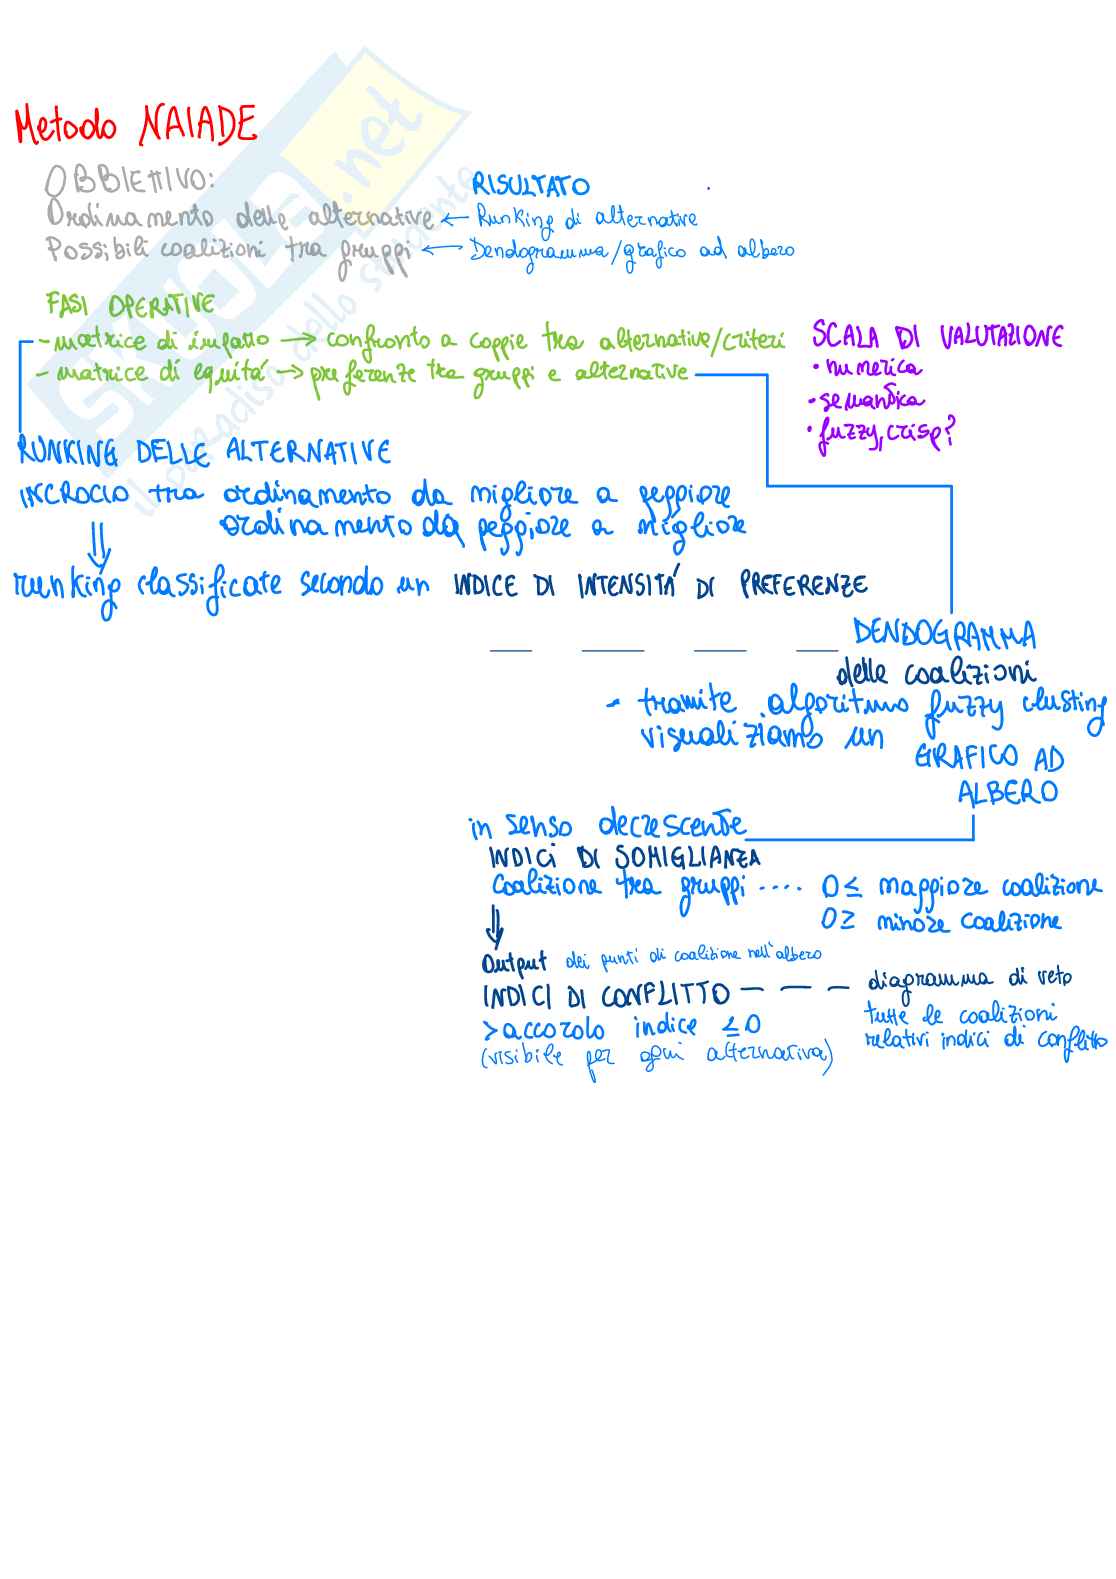 Metodo NAIADE
OBBIETTIVO:
RISULTATO
Ordinamento delle alternative ← Runking di alternative
Possibili coalizioni tra gruppi ← Dendogramma/grafico ad albero
FASI OPERATIVE
- matrice di impatto → confronto a coppie tra alternative/criteri
- matrice di equità → preferenze tra gruppi e alternative
SCALA DI VALUTAZIONE
• numerica
• semantica
• fuzzy, crisp?
RUNKING DELLE ALTERNATIVE
INCROCIO tra ordinamento da migliore a peggiore
ordinamento da peggiore a migliore
runking classificate secondo un INDICE DI INTENSITÁ DI PREFERENZE
DENDOGRAMMA
delle coalizioni
- tramite algoritmo fuzzy clusting
visualizziamo un
GRAFICO AD
ALBERO
in senso decrescente
INDICI DI SOMIGLIANZA
Coalizione tra gruppi .... 0≤ maggiore coalizione
0≥ minore coalizione
Output dei punti di coalizione nell'albero
INDICI DI CONFLITTO - - - diagramma di veto
tutte le coalizioni
relativi indici di conflitto
> accordo indice ≤ 0
(visibile per ogni alternativa)
SKUOLA.net
il paradiso dello studente